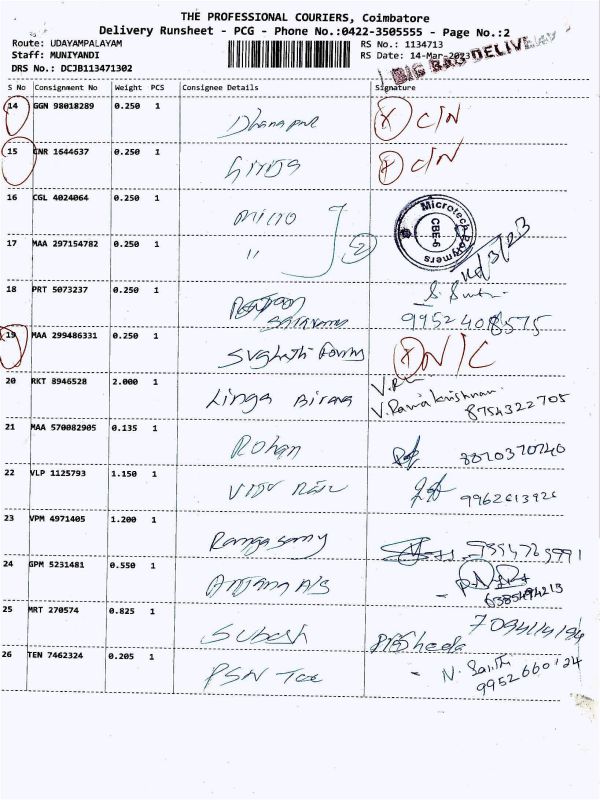 THE PROFESSIONAL COURIERS, Coimbatore
Delivery Runsheet - PCG - Phone No.:0422-3505555 - Page No.:2
Route: UDAYAMPALAYAM RS No.: 1134713
Staff: MUNIYANDI RS Date: 14-Mar-2023
DRS No.: DCJB113471302 BIG BAG DELIVERY
S No Consignment No Weight PCS Consignee Details Signature
14 GGN 98018289 0.250 1
X C/N
15 GNR 1644637 0.250 1
X C/N
16 CGL 4024064 0.250 1
micro
17 MAA 297154782 0.250 1
" 2
Microtech Polymers CBE-6
14/3/23
18 PRT 5073237 0.250 1
9952408575
19 MAA 299486331 0.250 1
X N/C
20 RKT 8946528 2.000 1
Linga Birava V.Ramakrishnan
8754322705
21 MAA 570082905 0.135 1
Rohan 8870370740
22 VLP 1125793 1.150 1
9962613926
23 VPM 4971405 1.200 1
Rangasamy
24 GPM 5231481 0.550 1
Anjana A/S
25 MRT 270574 0.825 1
Subash
26 TEN 7462324 0.205 1
PSN
9952660124